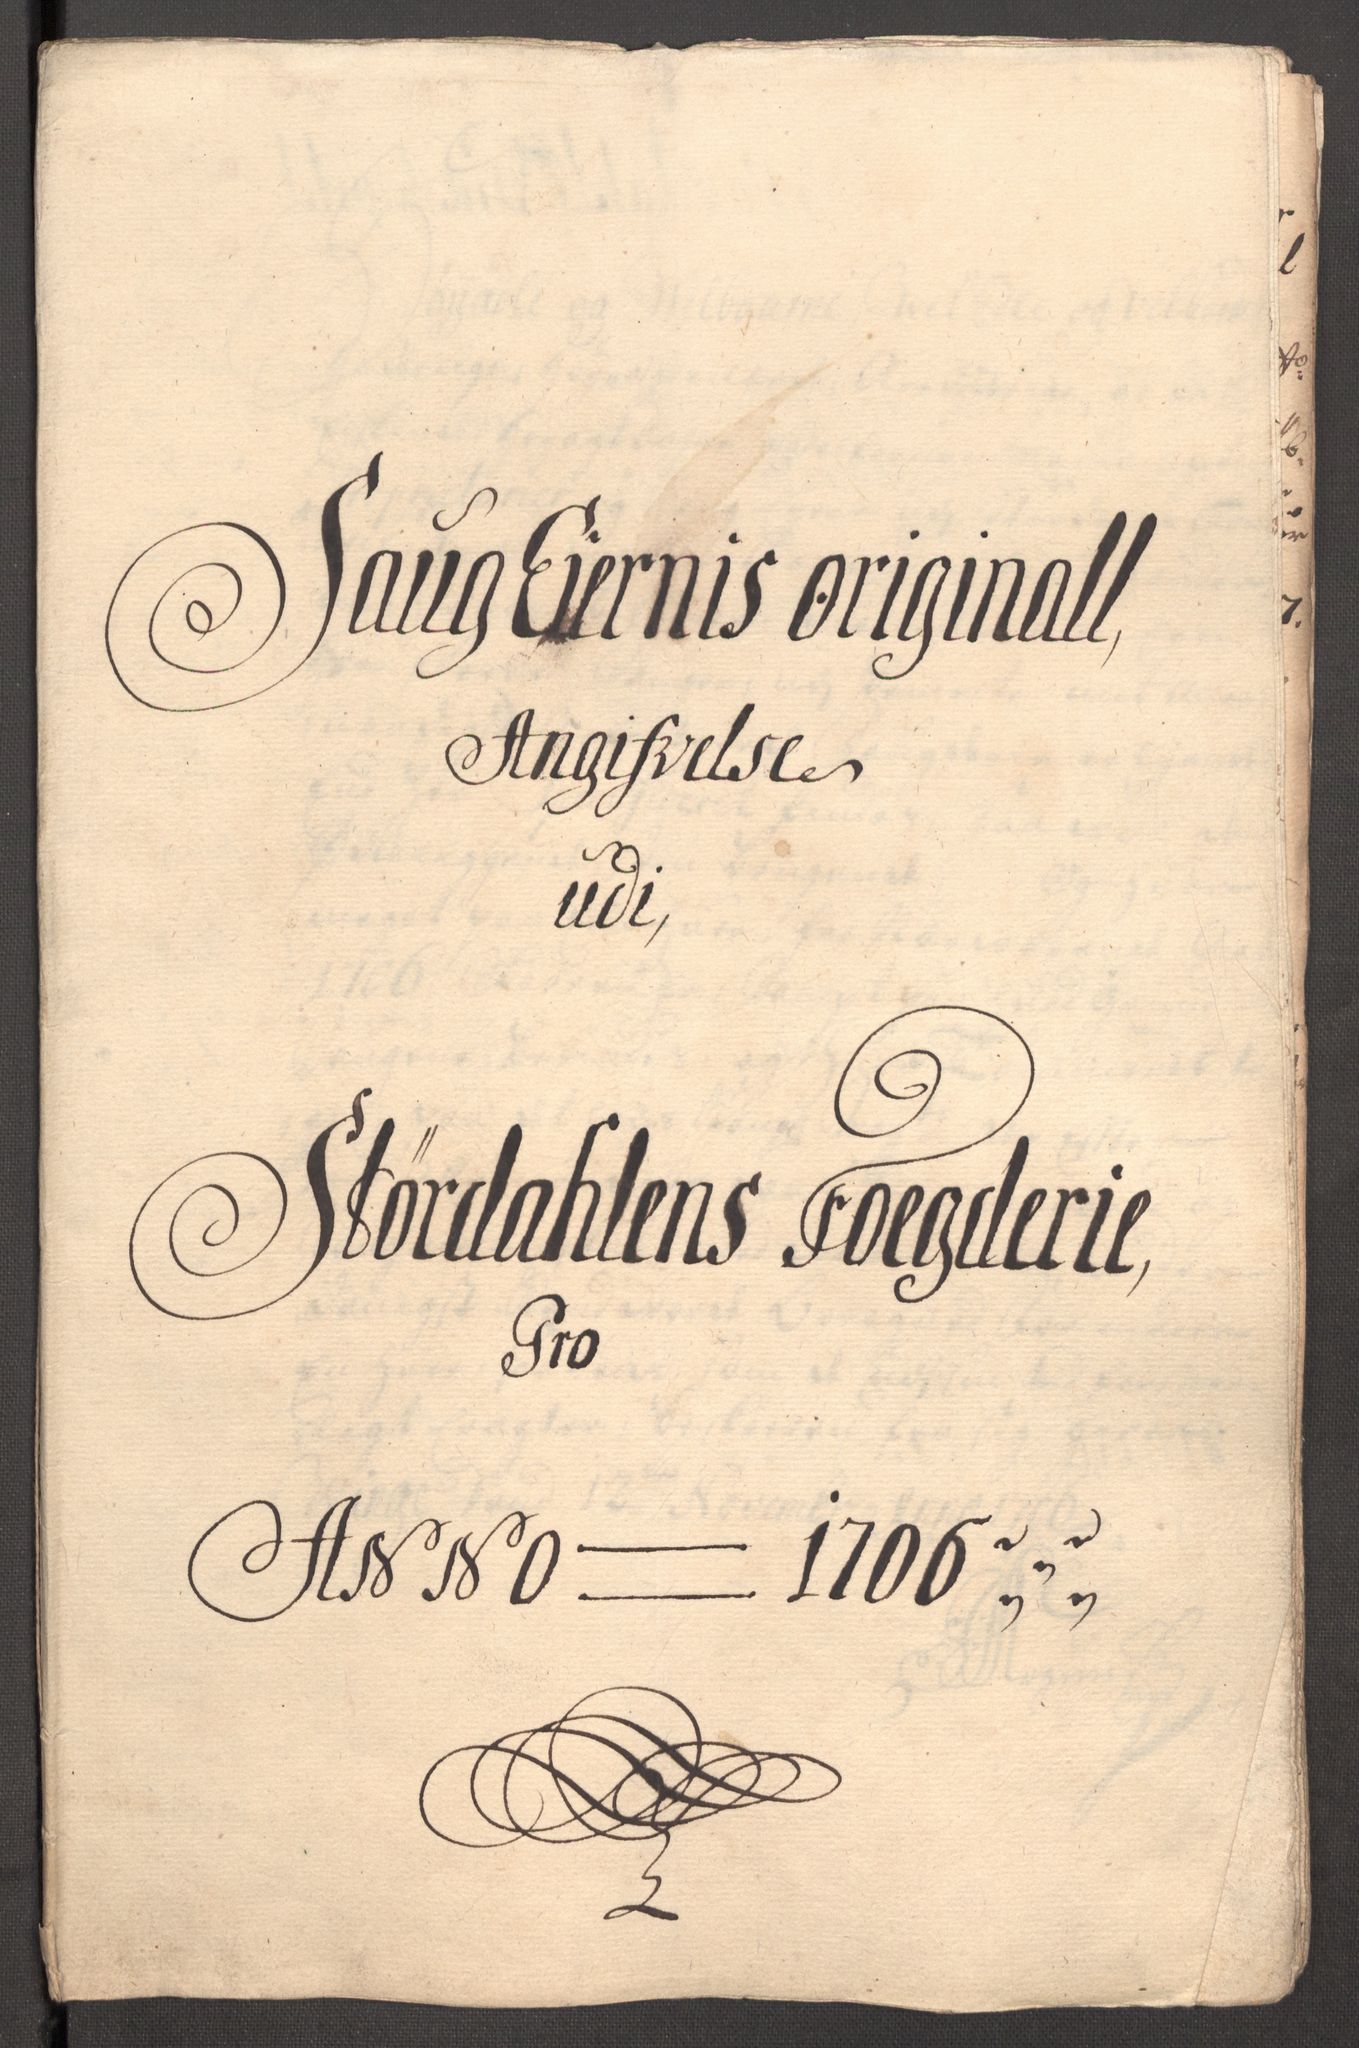 Saug Eiernis originall,
Angifvelse
udi,
Stördahlens Foegderie,
Pro
ANNO 1706